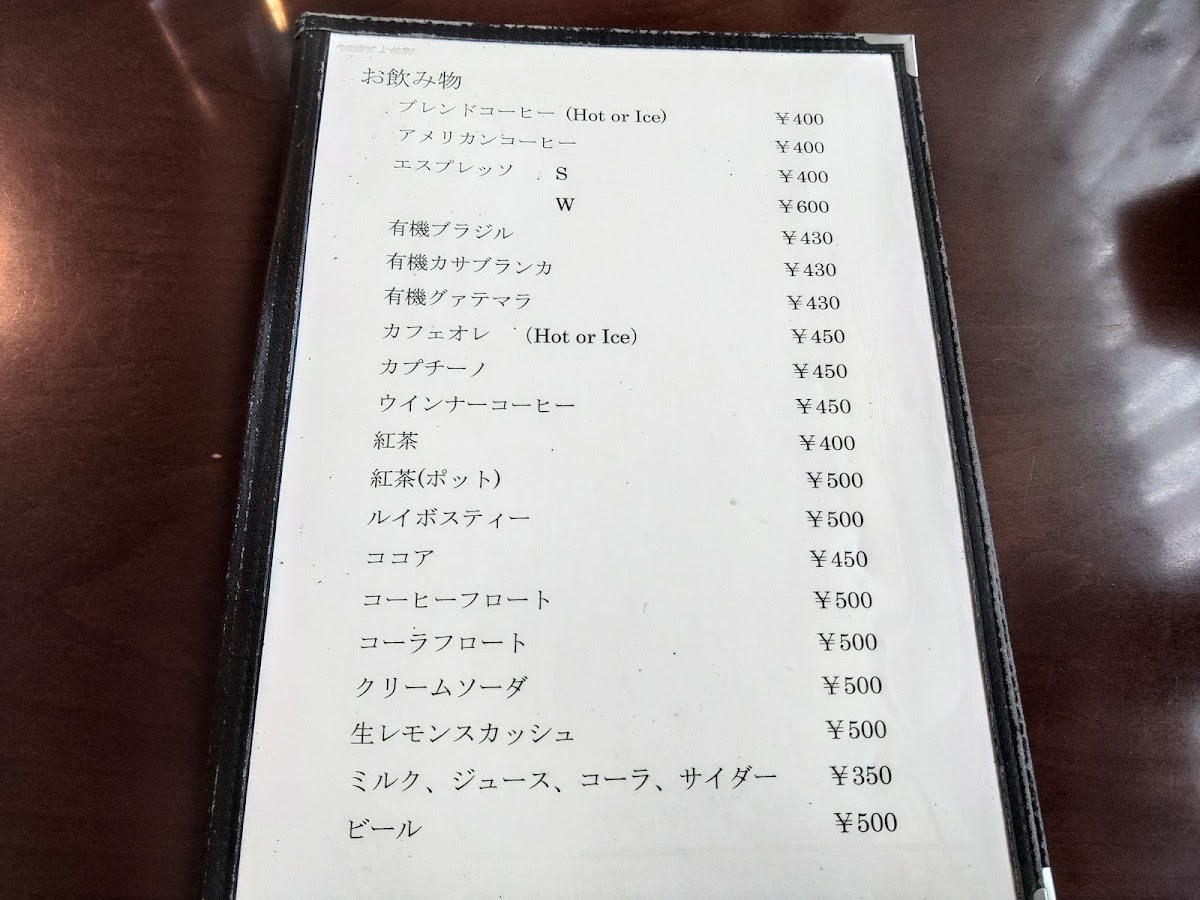 お飲み物
ブレンドコーヒー (Hot or Ice) ￥400
アメリカンコーヒー ￥400
エスプレッソ S ￥400
W ￥600
有機ブラジル ￥430
有機カサブランカ ￥430
有機グァテマラ ￥430
カフェオレ (Hot or Ice) ￥450
カプチーノ ￥450
ウインナーコーヒー ￥450
紅茶 ￥400
紅茶(ポット) ￥500
ルイボスティー ￥500
ココア ￥450
コーヒーフロート ￥500
コーラフロート ￥500
クリームソーダ ￥500
生レモンスカッシュ ￥500
ミルク、ジュース、コーラ、サイダー ￥350
ビール ￥500